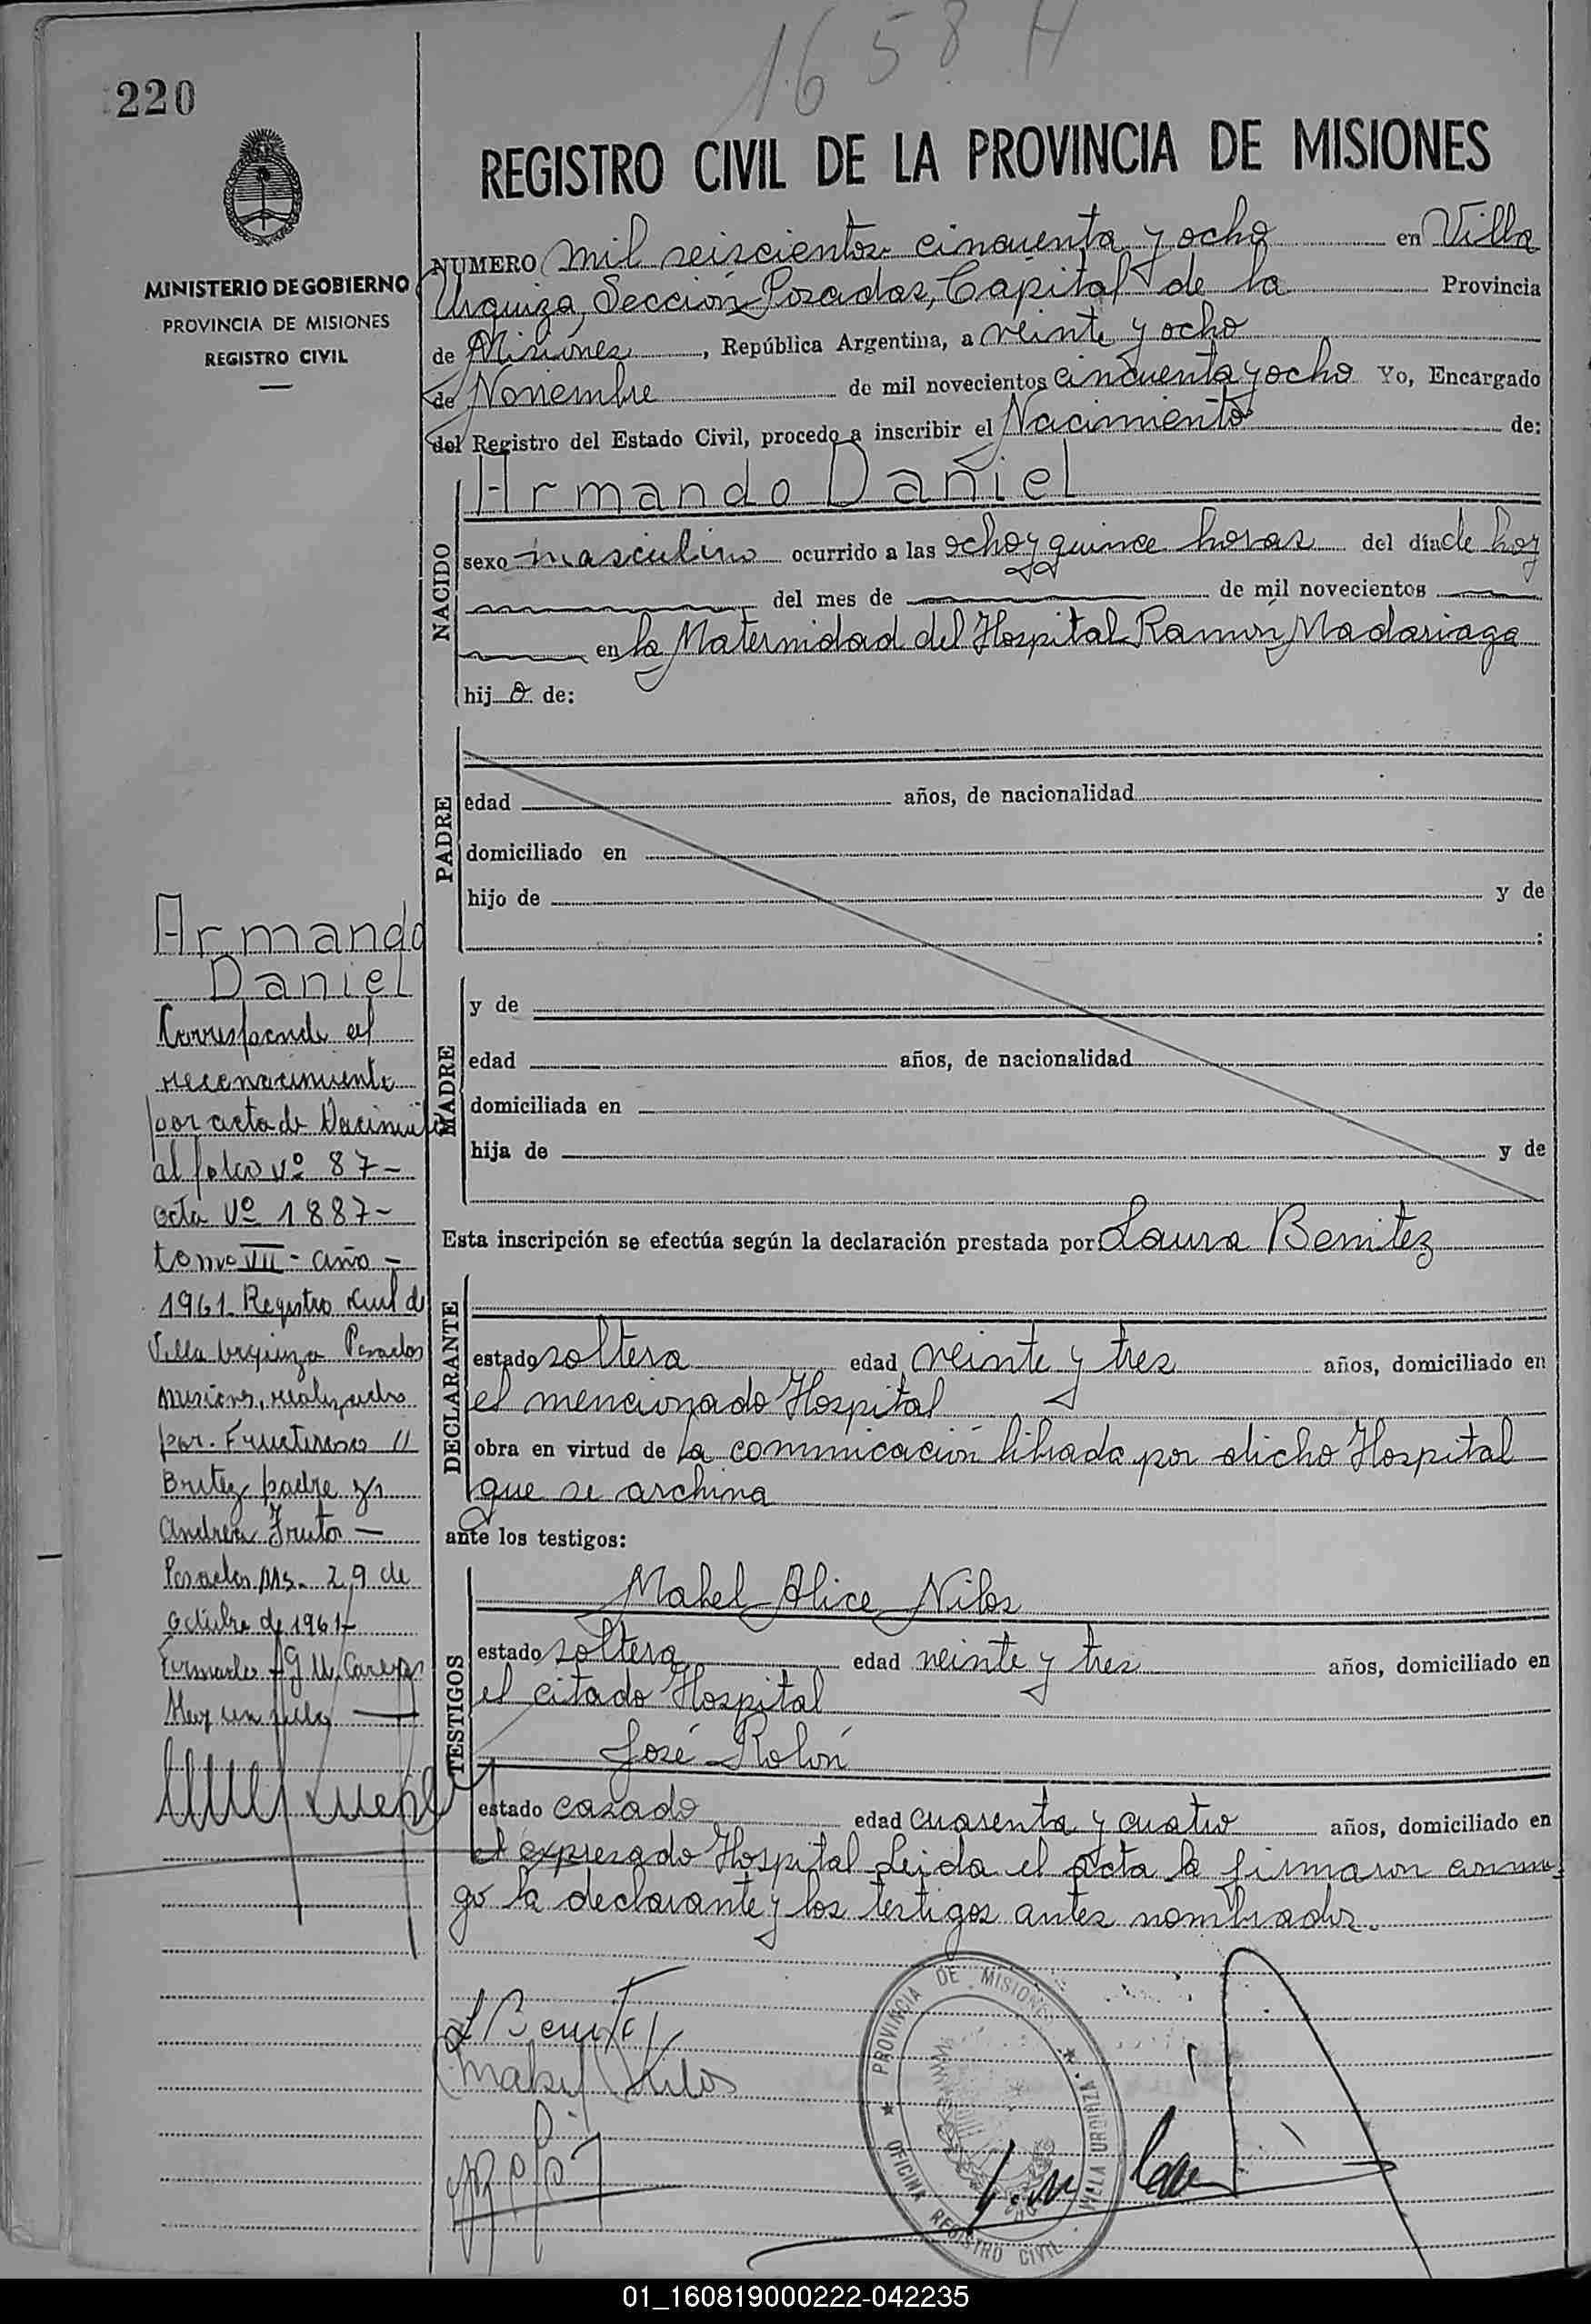 1658 H
220
REGISTRO CIVIL DE LA PROVINCIA DE MISIONES
MINISTERIO DE GOBIERNO
PROVINCIA DE MISIONES
REGISTRO CIVIL
NUMERO mil seiscientos cincuenta y ocho en Villa
Urquiza, Sección Posadas, Capital de la Provincia
de Misiones, República Argentina, a veinte y ocho
de Noviembre de mil novecientos cincuenta y ocho Yo, Encargado
del Registro del Estado Civil, procedo a inscribir el Nacimiento de:
NACIDO
Armando Daniel
sexo masculino ocurrido a las ocho y quince horas del día de hoy
del mes de de mil novecientos
en la Maternidad del Hospital Ramón Madariaga
hijo de:
PADRE
edad años, de nacionalidad
domiciliado en
hijo de y de
:
MADRE
y de
edad años, de nacionalidad
domiciliada en
hija de y de
Esta inscripción se efectúa según la declaración prestada por Laura Benitez
DECLARANTE
estado soltera edad veinte y tres años, domiciliado en
el mencionado Hospital
obra en virtud de la comunicación librada por dicho Hospital
que se archiva
ante los testigos:
TESTIGOS
Mabel Alice Nilos
estado soltera edad veinte y tres años, domiciliado en
el citado Hospital
José Rolón
estado casado edad cuarenta y cuatro años, domiciliado en
el expresado Hospital Leida el acta la firmaron conmi-
go la declarante y los testigos antes nombrados.
Armando
Daniel
Corresponde al
reconocimiento
por acta de Nacimiento
al folio Nº 87-
acta Nº 1887-
tomo VII - año -
1961 Registro Civil de
Villa Urquiza Posadas
Misiones, realizado
por Fructuoso
Britez padre y
Andrea Fruto -
Posadas Ms. 29 de
Octubre de 1961-
Firmado
Hay un sello
L Benitez
Mabel Nilos
PROVINCIA DE MISIONES
OFICINA REGISTRO CIVIL
VILLA URQUIZA
01_160819000222-042235